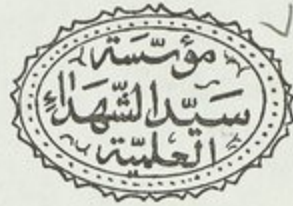 مؤسّسة
سيّد الشّهداء
العلميّة